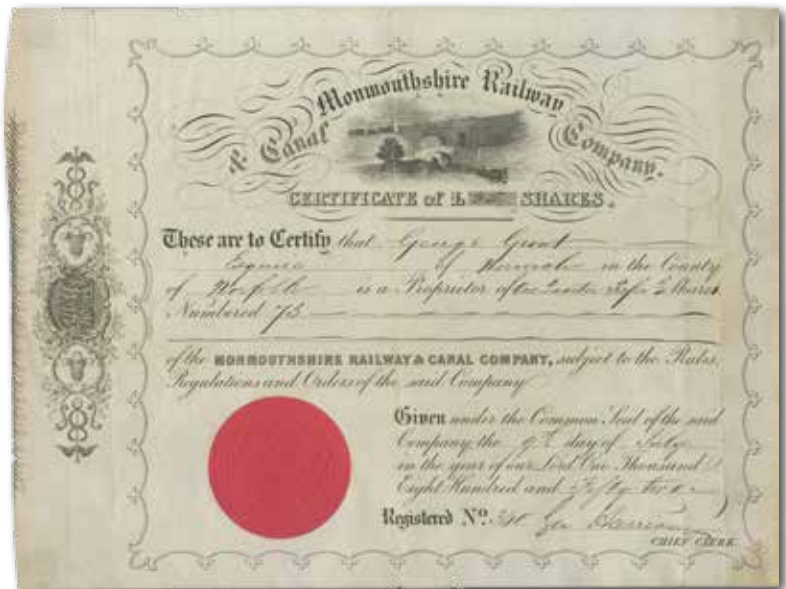 Monmouthshire Railway
& Canal Company.
CERTIFICATE of £ SHARES.
These are to Certify that George Grant
Esquire of Norwich in the County
of Norfolk is a Proprietor of Shares
Numbered 73
of the MONMOUTHSHIRE RAILWAY & CANAL COMPANY, subject to the Rules,
Regulations and Orders of the said Company
Given under the Common Seal of the said
Company, the 9th day of July
in the year of our Lord One Thousand
Eight Hundred and Fifty two
Registered No. Geo Harrison
CHIEF CLERK